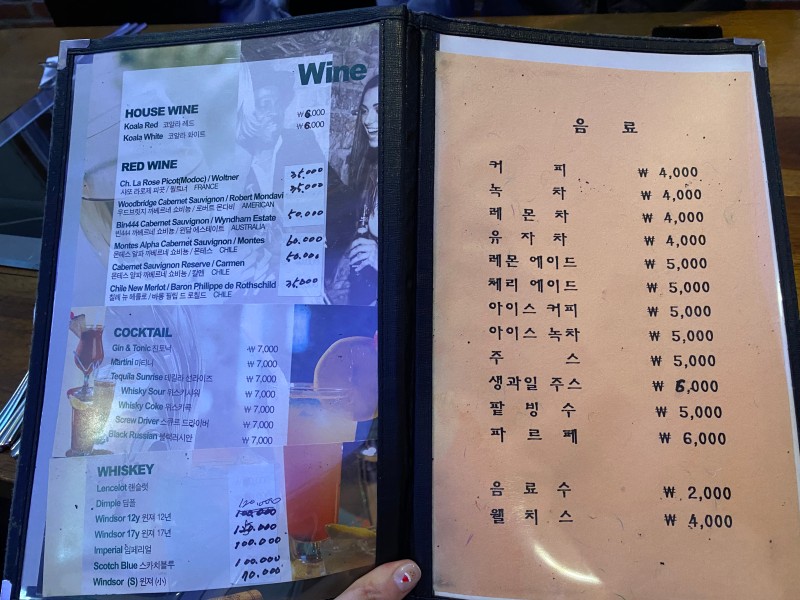 Wine
HOUSE WINE
Koala Red 코알라 레드 ₩6,000
Koala White 코알라 화이트 ₩6,000
RED WINE
Ch. La Rose Picot(Modoc) / Woltner 35,000
샤또 라로제 피곳 / 월트너 FRANCE
Woodbridge Cabernet Sauvignon / Robert Mondavi 35,000
우드브릿지 까베르네 쇼비뇽 / 로버트 몬다비 AMERICAN
Bin444 Cabernet Sauvignon / Wyndham Estate 50,000
빈444 까베르네 쇼비뇽 / 윈담 에스테이트 AUSTRALIA
Montes Alpha Cabernet Sauvignon / Montes 60,000
몬테스 알파 까베르네 쇼비뇽 / 몬테스 CHILE
Cabernet Sauvignon Reserve / Carmen 50,000
몬테스 알파 까베르네 쇼비뇽 / 칼멘 CHILE
Chile New Merlot / Baron Philippe de Rothschild 35,000
칠레 뉴 메를로 / 바롱 필립 드 로칠드 CHILE
COCKTAIL
Gin & Tonic 진토닉 ₩7,000
Martini 마티니 ₩7,000
Tequila Sunrise 데킬라 선라이즈 ₩7,000
Whisky Sour 위스키사워 ₩7,000
Whisky Coke 위스키콕 ₩7,000
Screw Driver 스큐류 드라이버 ₩7,000
Black Russian 블랙러시안 ₩7,000
WHISKEY
Lencelot 랜슬럿
Dimple 딤플 120,000
Windsor 12y 윈져 12년
Windsor 17y 윈져 17년
Imperial 임페리얼 100,000
Scotch Blue 스카치블루 100,000
Windsor (S) 윈져 (小) 70,000
음 료
커 피 ₩ 4,000
녹 차 ₩ 4,000
레 몬 차 ₩ 4,000
유 자 차 ₩ 4,000
레몬 에이드 ₩ 5,000
체리 에이드 ₩ 5,000
아이스 커피 ₩ 5,000
아이스 녹차 ₩ 5,000
주 스 ₩ 5,000
생과일 주스 ₩ 6,000
팥 빙 수 ₩ 5,000
파 르 페 ₩ 6,000
음 료 수 ₩ 2,000
웰 치 스 ₩ 4,000